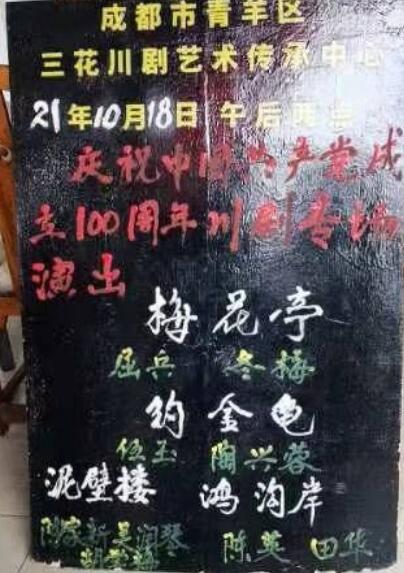 成都市青羊区
三花川剧艺术传承中心
21年10月18日 午后两点
庆祝中国共产党成
立100周年川剧专场
演出
梅花亭
屈兵 冬梅
钓金龟
伍玉 陶兴蓉
泥壁楼 鸿沟岸
吴润琴 陈英 田华